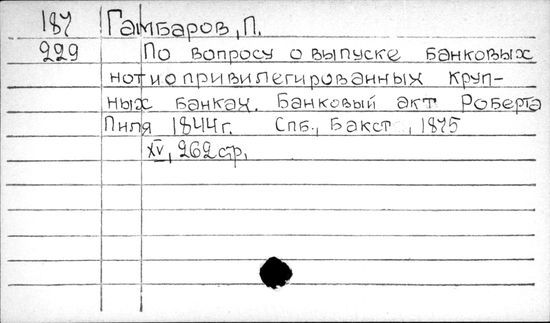 187 Гамбаров, П.
229 По вопросу о выпуске банковых
нот и о привилегированных круп-
ных банках. Банковый акт Роберта
Пиля 1844 г. Спб., Бакст, 1875
XV, 262 стр.